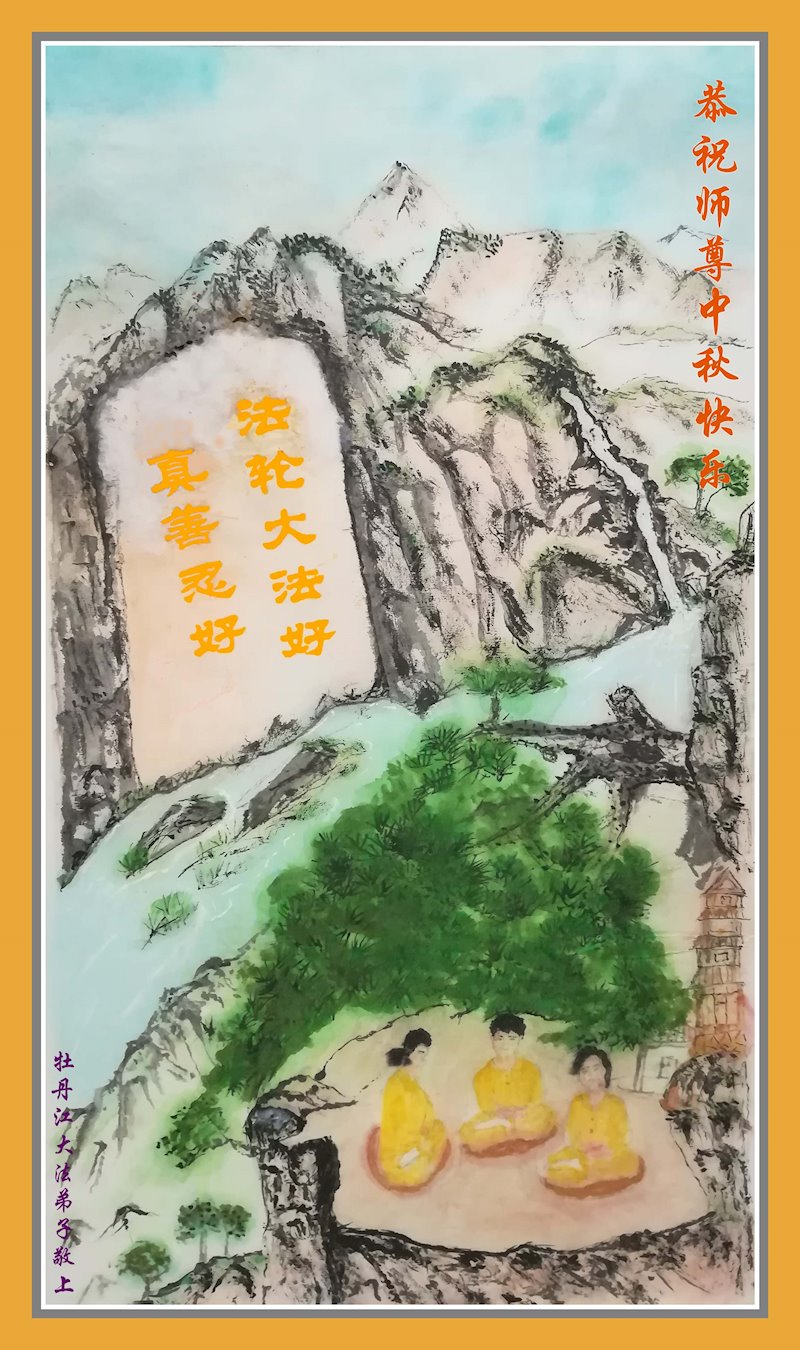 恭祝师尊中秋快乐
法轮大法好
真善忍好
牡丹江大法弟子敬上